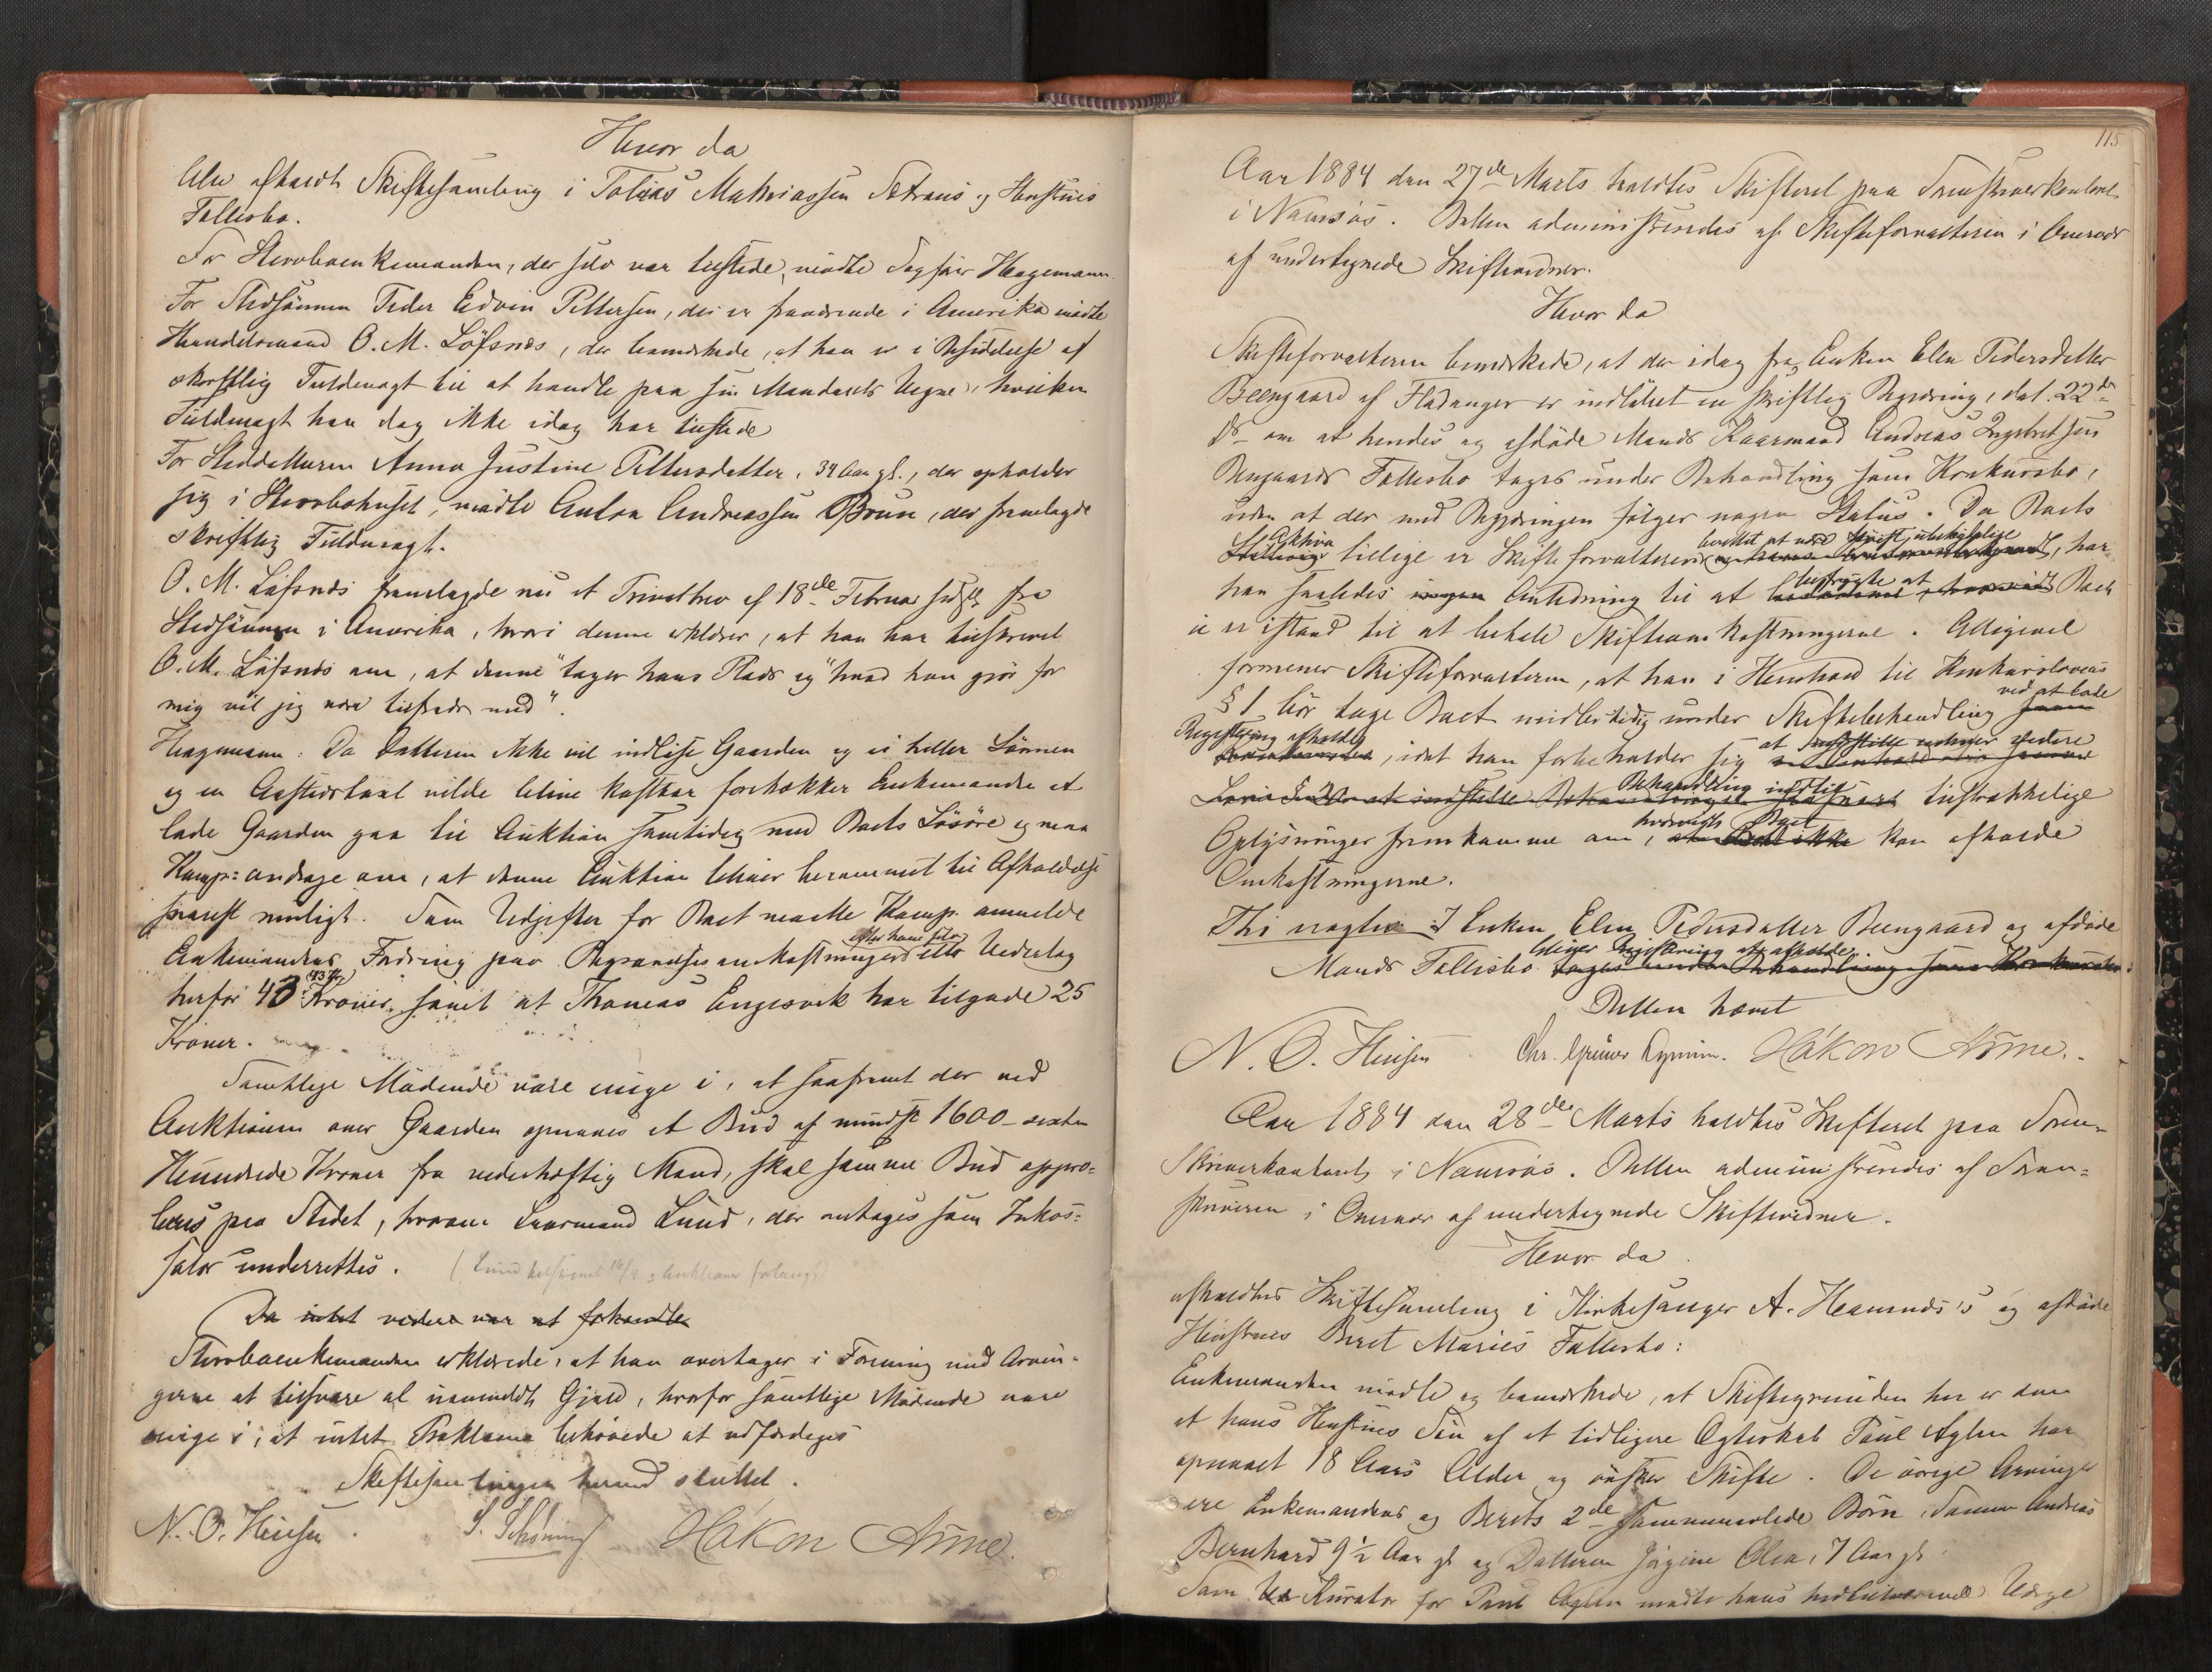 Hvor da
blev afholdt Skiftesamling i Tobias Mathiassen Setrans og Hustrues
Fællesbo.
For Stervboenkemanden, der selv var tilstede, mødte Sagfører Hagemann.
For Stedsønnen Peder Edvin Pettersen, der er fraværende i Amerika mødte
Handelsmand O. M. Löfsnes, der bemærkede, at han er i Besiddelse af
skriftlig Fuldmagt til at handle paa sin Mandants Vegne, hvilken
Fuldmagt han dog ikke idag har tilstede
For Steddatteren Anna Justine Pettersdatter, 34 Aar gl., der opholder
sig i Stervbohuset, mødte Anton Andreassen Brun, der fremlagde
skriftlig Fuldmagt.
O. M. Løfsnes fremlagde nu et Privatbrev af 18de Februar sidstl. fra
Stedsønnen i Amerika, hvori denne erklærer, at han har tilskrevet
O. M. Løfsnes om, at denne "tager hans Plads og "hvad han gjør for
mig vil jeg være tilfreds med".
Hagemann: Da Datteren ikke vil indløse Gaarden og ei heller Sønnen
og en Aastedstaxt vilde blive kostbar foretrækker Enkemanden at
lade Gaarden gaa til Auktion samtidig med Boets Løsøre og maa
Komp: andrage om, at denne Auktion bliver berammet til Afholdelse
snarest muligt. Som Udgifter for Boet maatte Komp. anmelde
Enkemandens Fordring paa Begravelsesomkostninger eller Vederlag
herfor 43 (43 Kr) Kroner, samt at Thomas Engesvik har tilgode 25
Kroner.
Samtlige Mødende vare enige i, at saafremt der ved
Auktionen over Gaarden opnaaes et Bud af mindst 1600 - sexten
Hundrede Kroner fra vederhæftig Mand, skal samme Bud appro=
beres paa Stedet, hvorom Lensmand Lund, der antages som Inkas=
sator underrettes.
Da intet videre var at forhandle
Stervboenkemanden erklærede, at han overtager i Forening med Arvin-
gerne at tilsvare al uanmeldt Gjæld, hvorfor samtlige Mødende vare
enige i, at intet Proklama behøvede at udfærdiges
Skiftesamlingen hermed sluttet.
N. O. Hensen S. Schøning Håkon Arme.
115
Aar 1884 den 27de Marts holdtes Skifteret paa Sorenskriverkontoret
i Namsos. Retten administreredes af Skifteforvalteren i Overvær
af undertegnede Skiftevidner.
Hvor da
Skifteforvalteren bemærkede, at der idag fra Enken Elen Pedersdatter
Beengaard af Fladanger er indløbet en skriftlig Begjæring, dat. 22de
ds. om at hendes og afdøde Mands Kaarmand Andreas Ingebretsen
Beengaards Fællesbo tages under Behandling som Konkursbo,
uden at der med Begjæringen følger nogen Status. Da Boets
Aktiva tillige er Skifteforvalteren bevidst at være høist ubetydelige, har
han saaledes ingen Anledning til at betrygte at Boet
ei er istand til at betale Skifteomkostningerne. Alligevel
formener Skifteforvalteren, at han i Henhold til Konkurslovens
§ 1 bør tage Boet midlertidig under Skiftebehandling ved at lade
Registrering afholde, idet han forbeholder sig at indstille videre
Behandling indtil tilstrækkelige
Oplysninger fremkomme om, hvorvidt Boet kan afholde
Omkostningerne.
Thi vragtes: I Enken Elen Pedersdatter Beengaard og afdøde
Mands Fællesbo bliver Registrering at afholde
tages under Behandling som Konkursbo.
Retten hævet
N. O. Hensen Chr. Håkon Arme.
Aar 1884 den 28de Marts holdtes Skifteret paa Soren-
skriverkontoret i Namsos. Retten administreredes af Soren=
skriveren i Overvær af undertegnede Skiftevidner.
Hvor da
afholdtes Skiftesamling i Kirkesanger A. Hemnes's og afdøde
Hustrues Beret Maries Fællesbo:
Enkemanden mødte og bemærkede, at Skiftegrunden her er den
at hans Hustrues Søn af et tidligere Ægteskab Paul Aglen har
opnaaet 18 Aars Alder og ønsker Skifte. De øvrige Arvinger
ere Enkemanden og Berets 2de sammenavlede Børn, Sønnen Andreas
Bernhard 9½ Aar gl og Datteren Jørgine Olea, 7 Aar gl.
Som Kurator for Paul Aglen mødte hans hidtilværende Værge